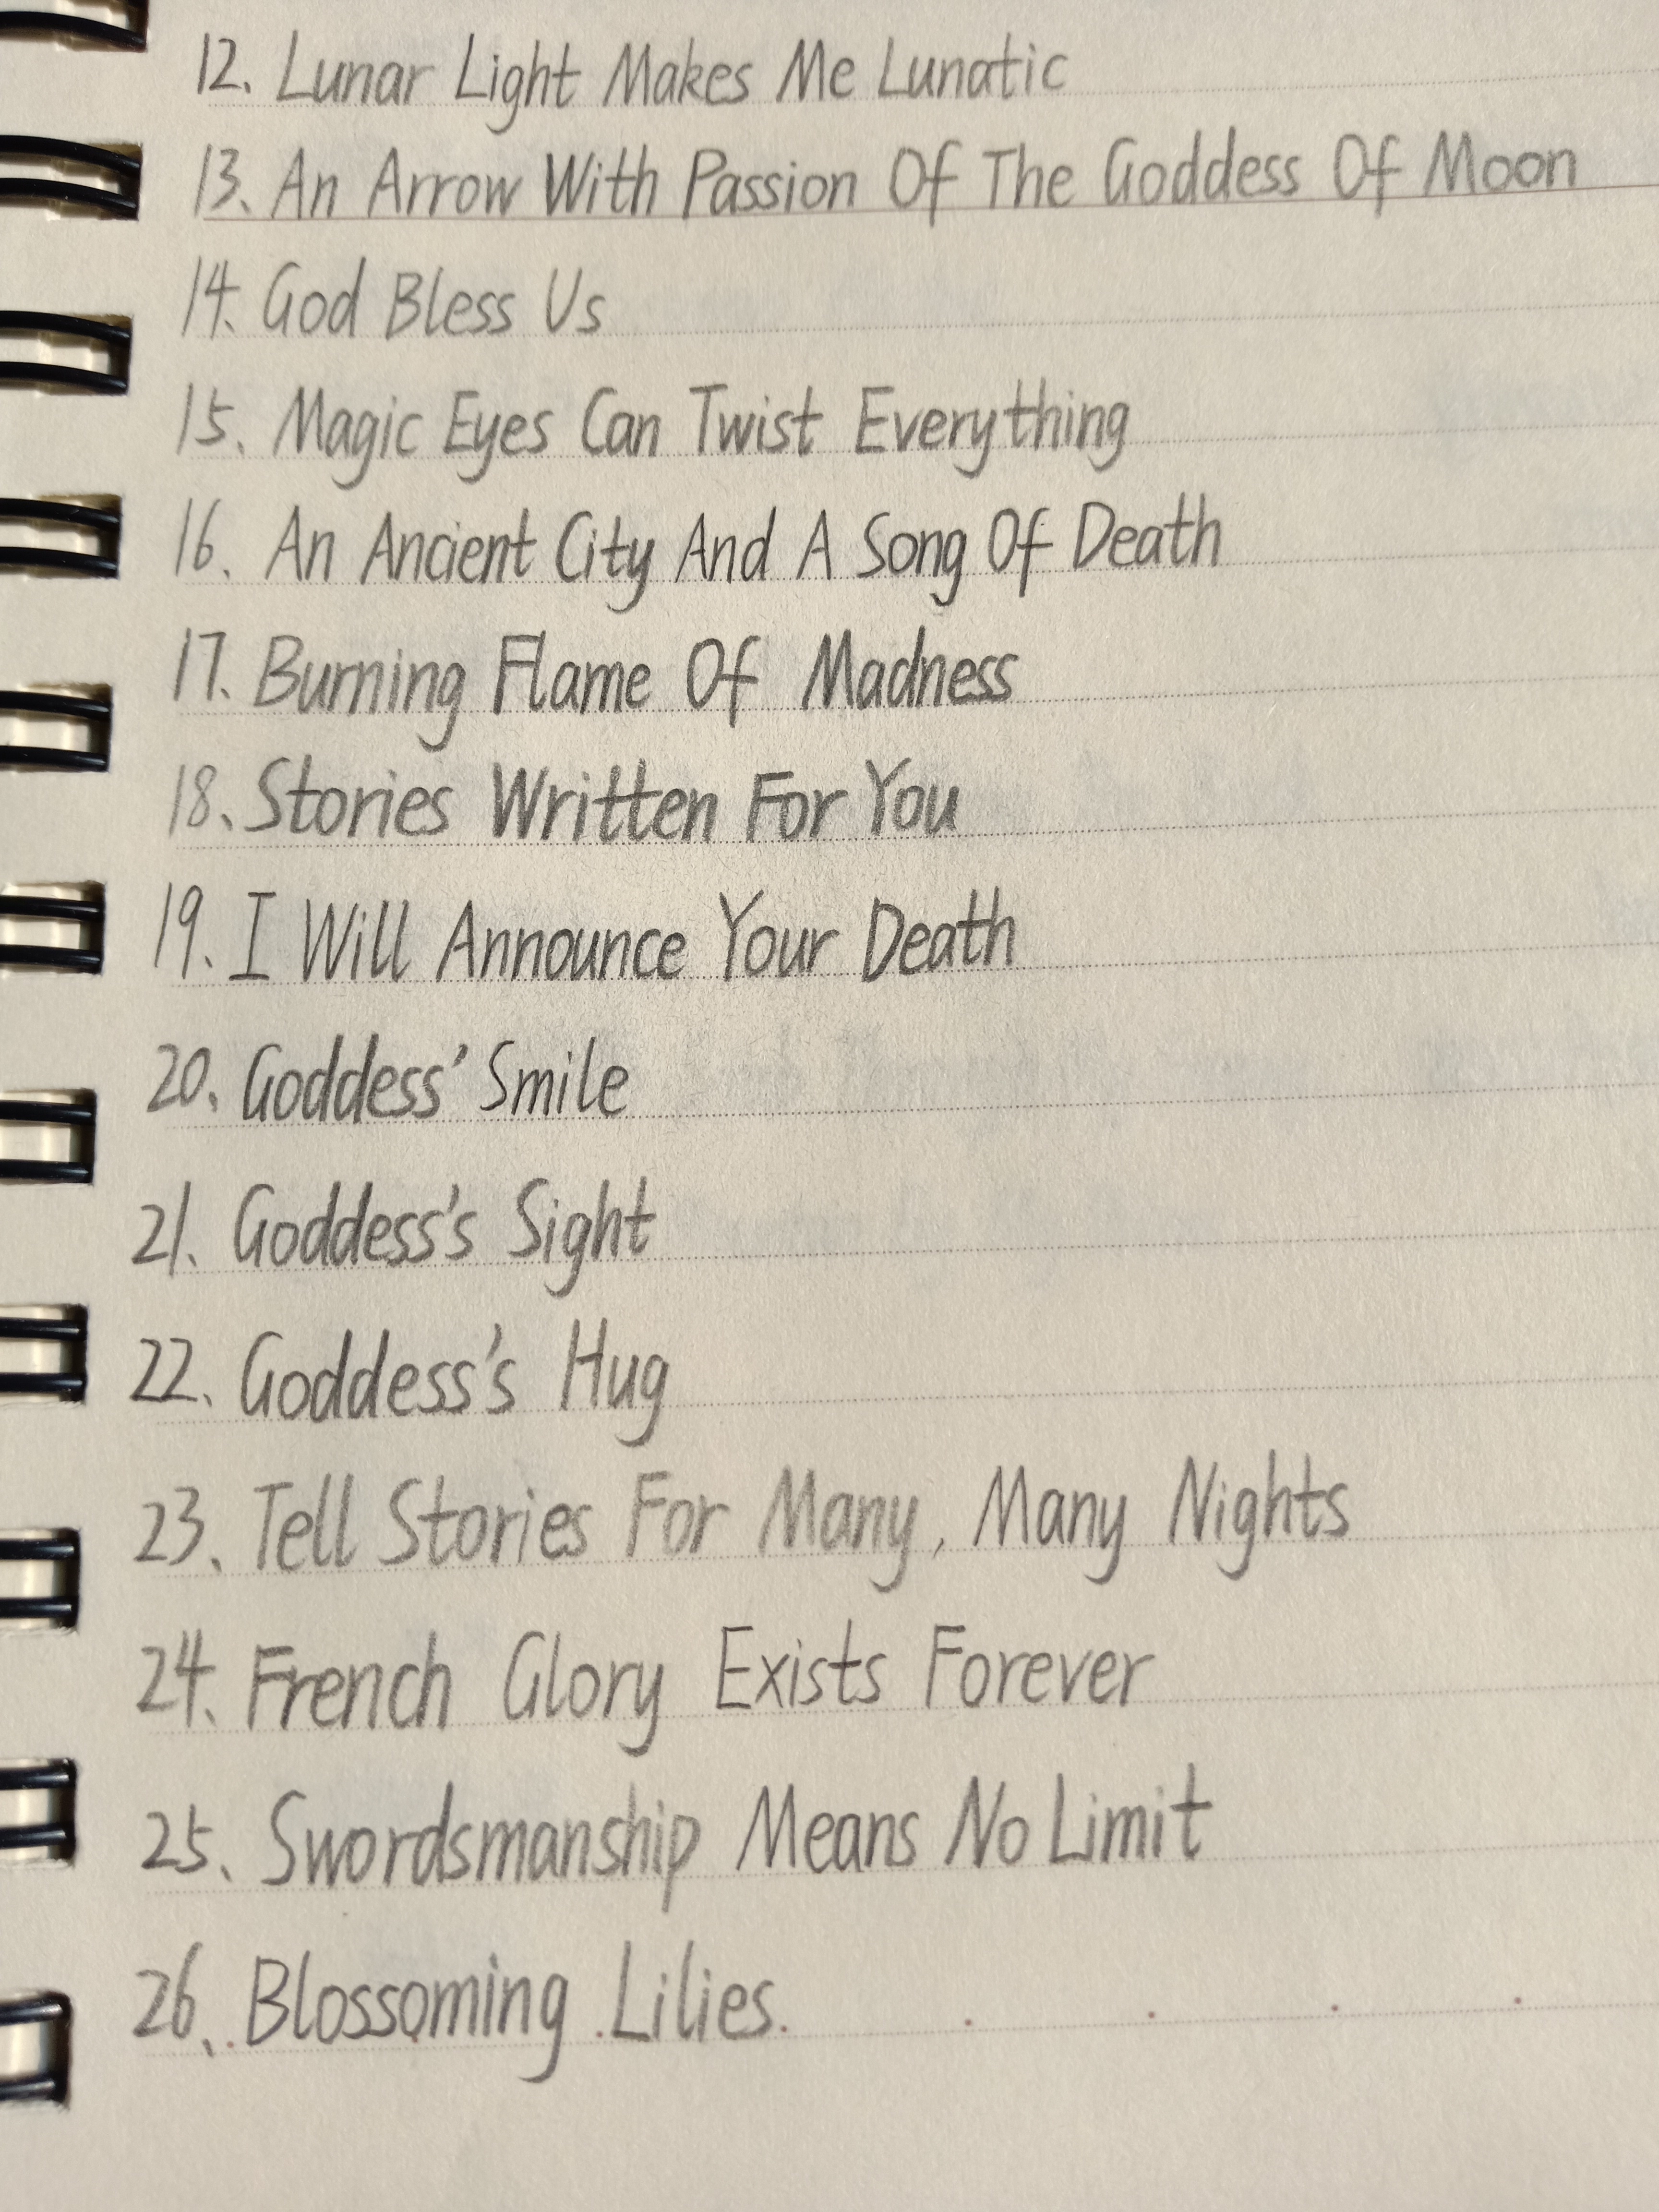 12. Lunar Light Makes Me Lunatic
13. An Arrow With Passion Of The Goddess Of Moon
14. God Bless Us
15. Magic Eyes Can Twist Everything
16. An Ancient City And A Song Of Death
17. Burning Flame Of Madness
18. Stories Written For You
19. I Will Announce Your Death
20. Goddess' Smile
21. Goddess's Sight
22. Goddess's Hug
23. Tell Stories For Many, Many Nights
24. French Glory Exists Forever
25. Swordsmanship Means No Limit
26. Blossoming Lilies